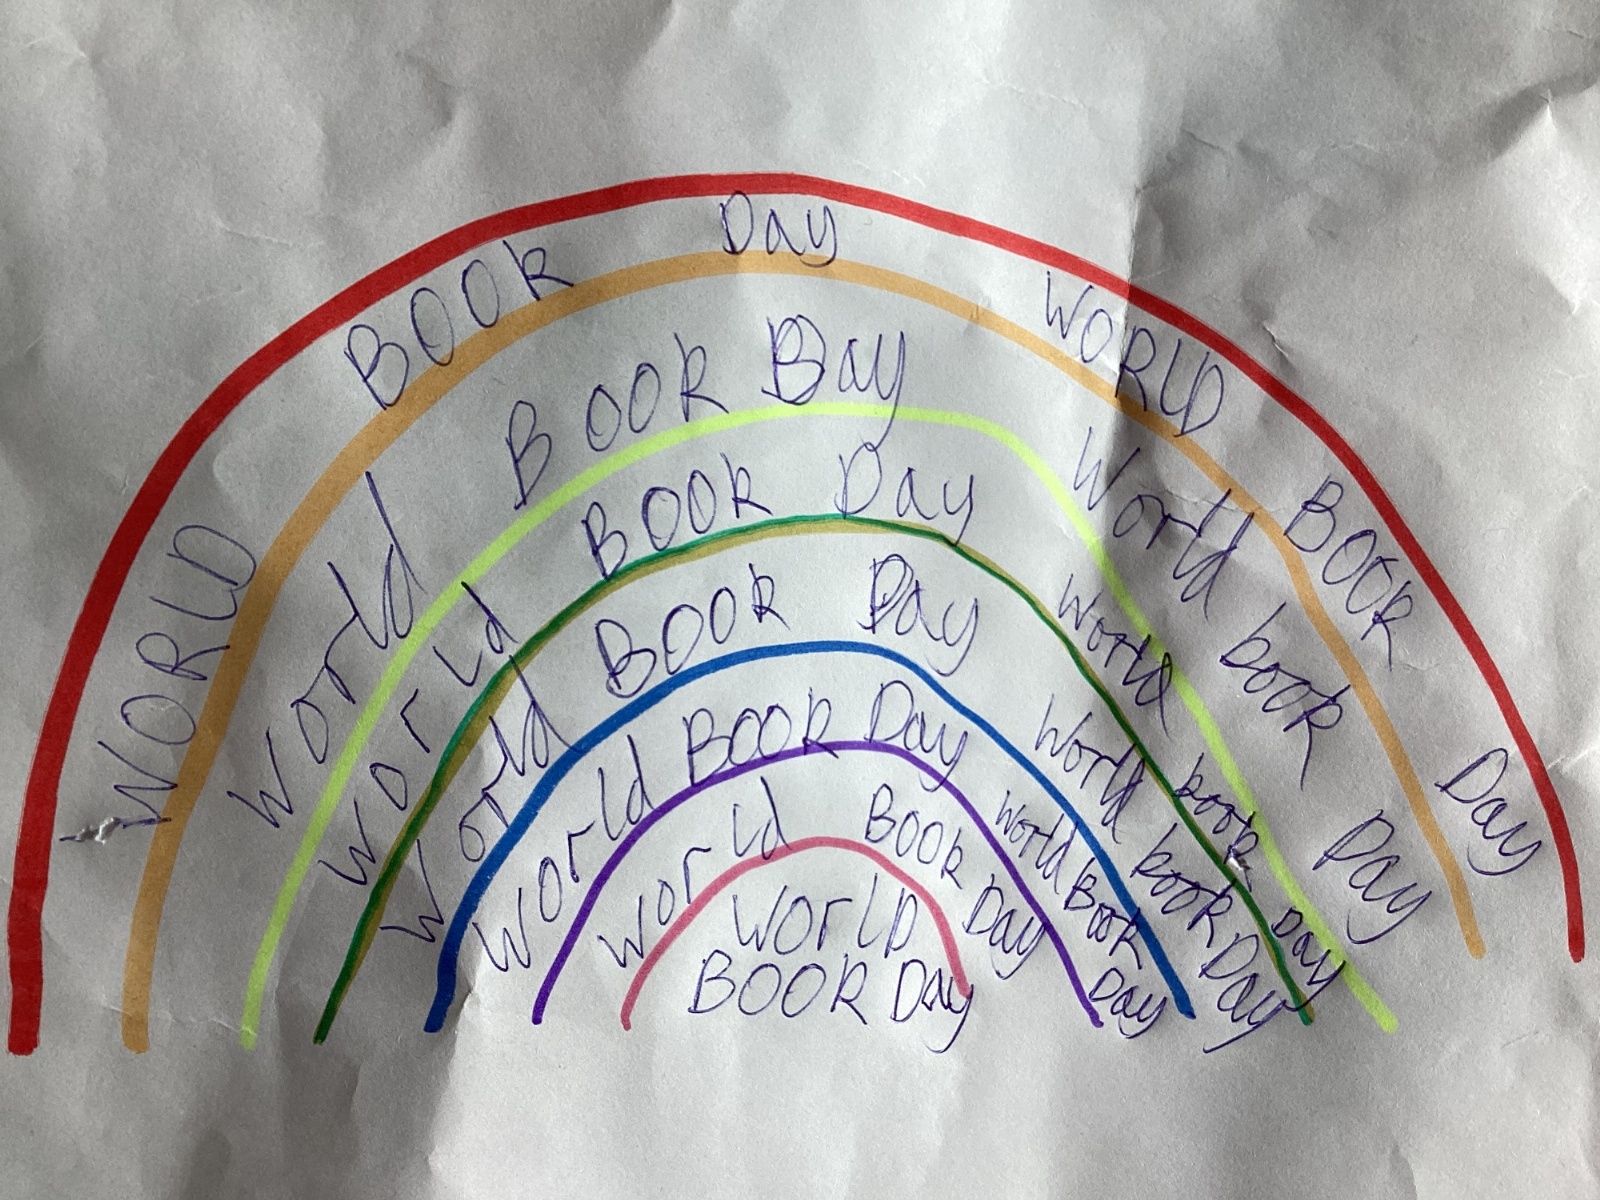 WORLD BOOK Day WORLD BOOK Day
World BOOK Day World book Day
World BOOK Day World book Day
World BOOK Day World book Day
World BOOK Day World Book Day
World BOOK Day
WorlD
BOOK Day